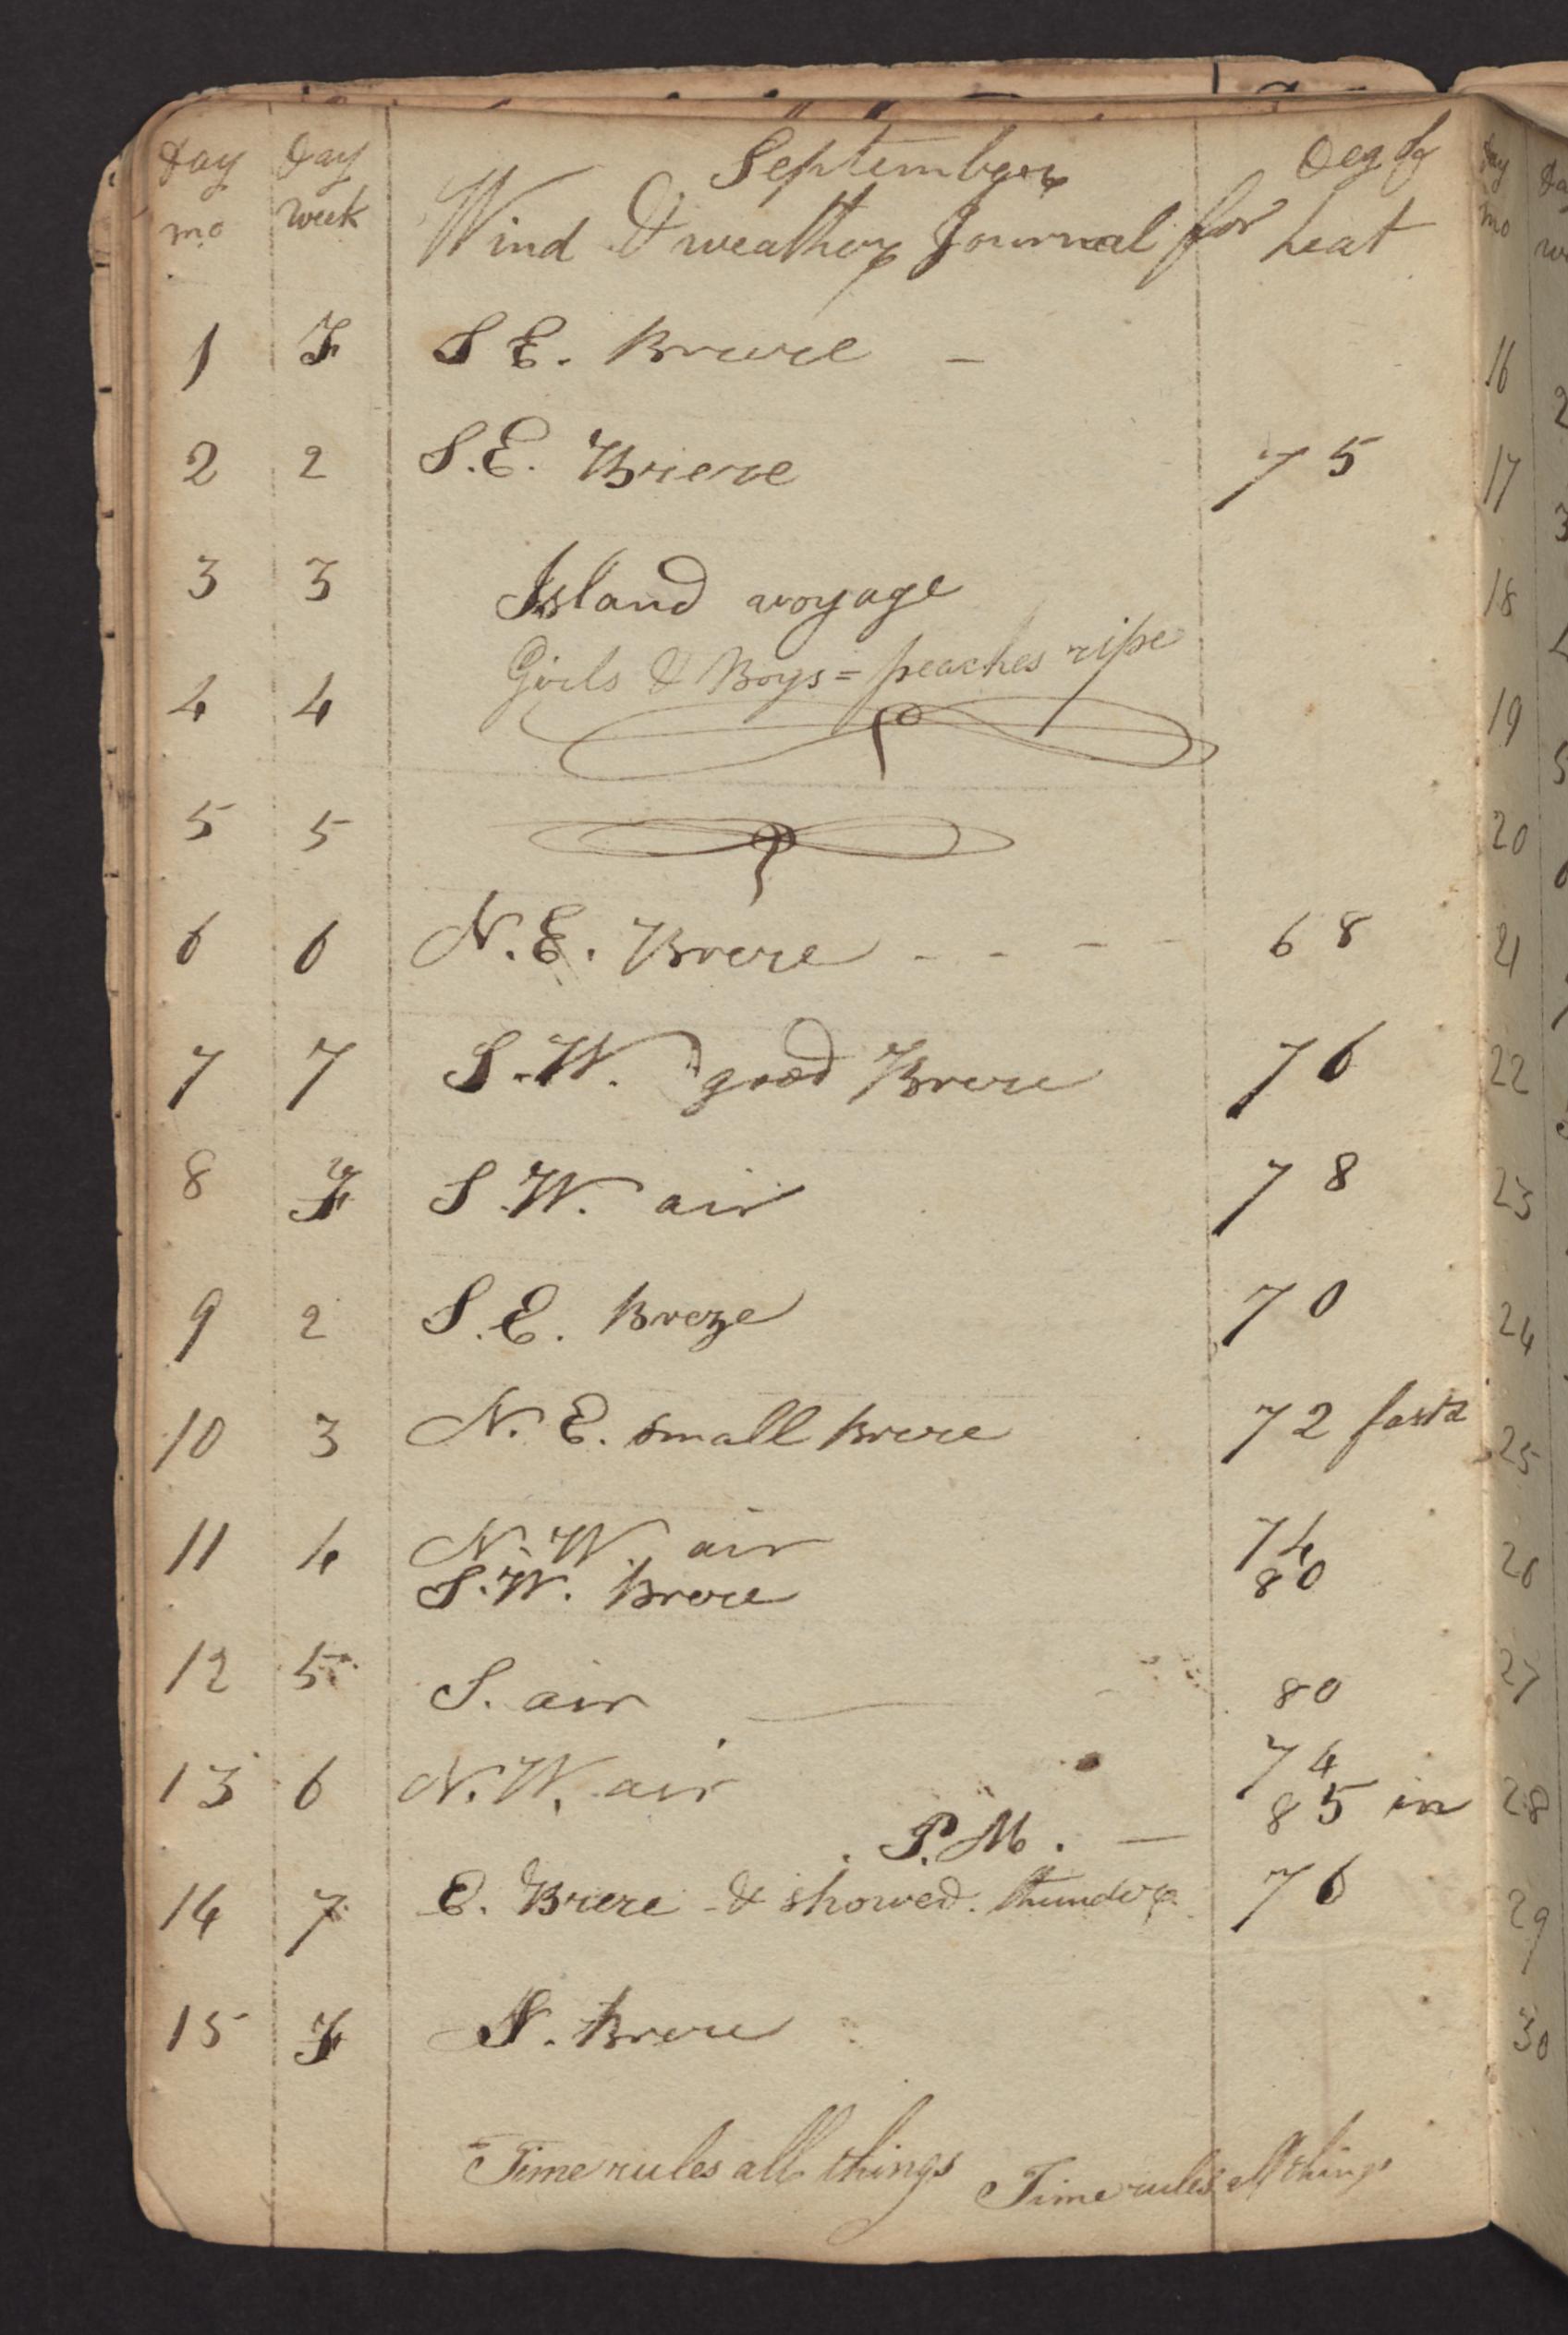 Day Day September Deg of
mo week Wind & weather Journal for heat
1 F S E. Breeze -
2 2 S.E. Breeze 75
3 3 Island voyage
Girls & Boys = peaches ripe
4 4
5 5
6 6 N.E. Breeze - - - - 68
7 7 S.W. good Breeze 76
8 F S.W. air 78
9 2 S.E. Breze 70
10 3 N.E. small breeze 72
11 4 N.W. air 74
S.W. Breeze 80
12 5 S. air 80
13 6 N.W. air 74
P.M. — 85 in
14 7 E. Breeze & showed. thunder 76
15 F N. Breeze
Time rules all things Time rules all things
day
mo
16
17
18
19
20
21
22
23
24
25
26
27
28
29
30